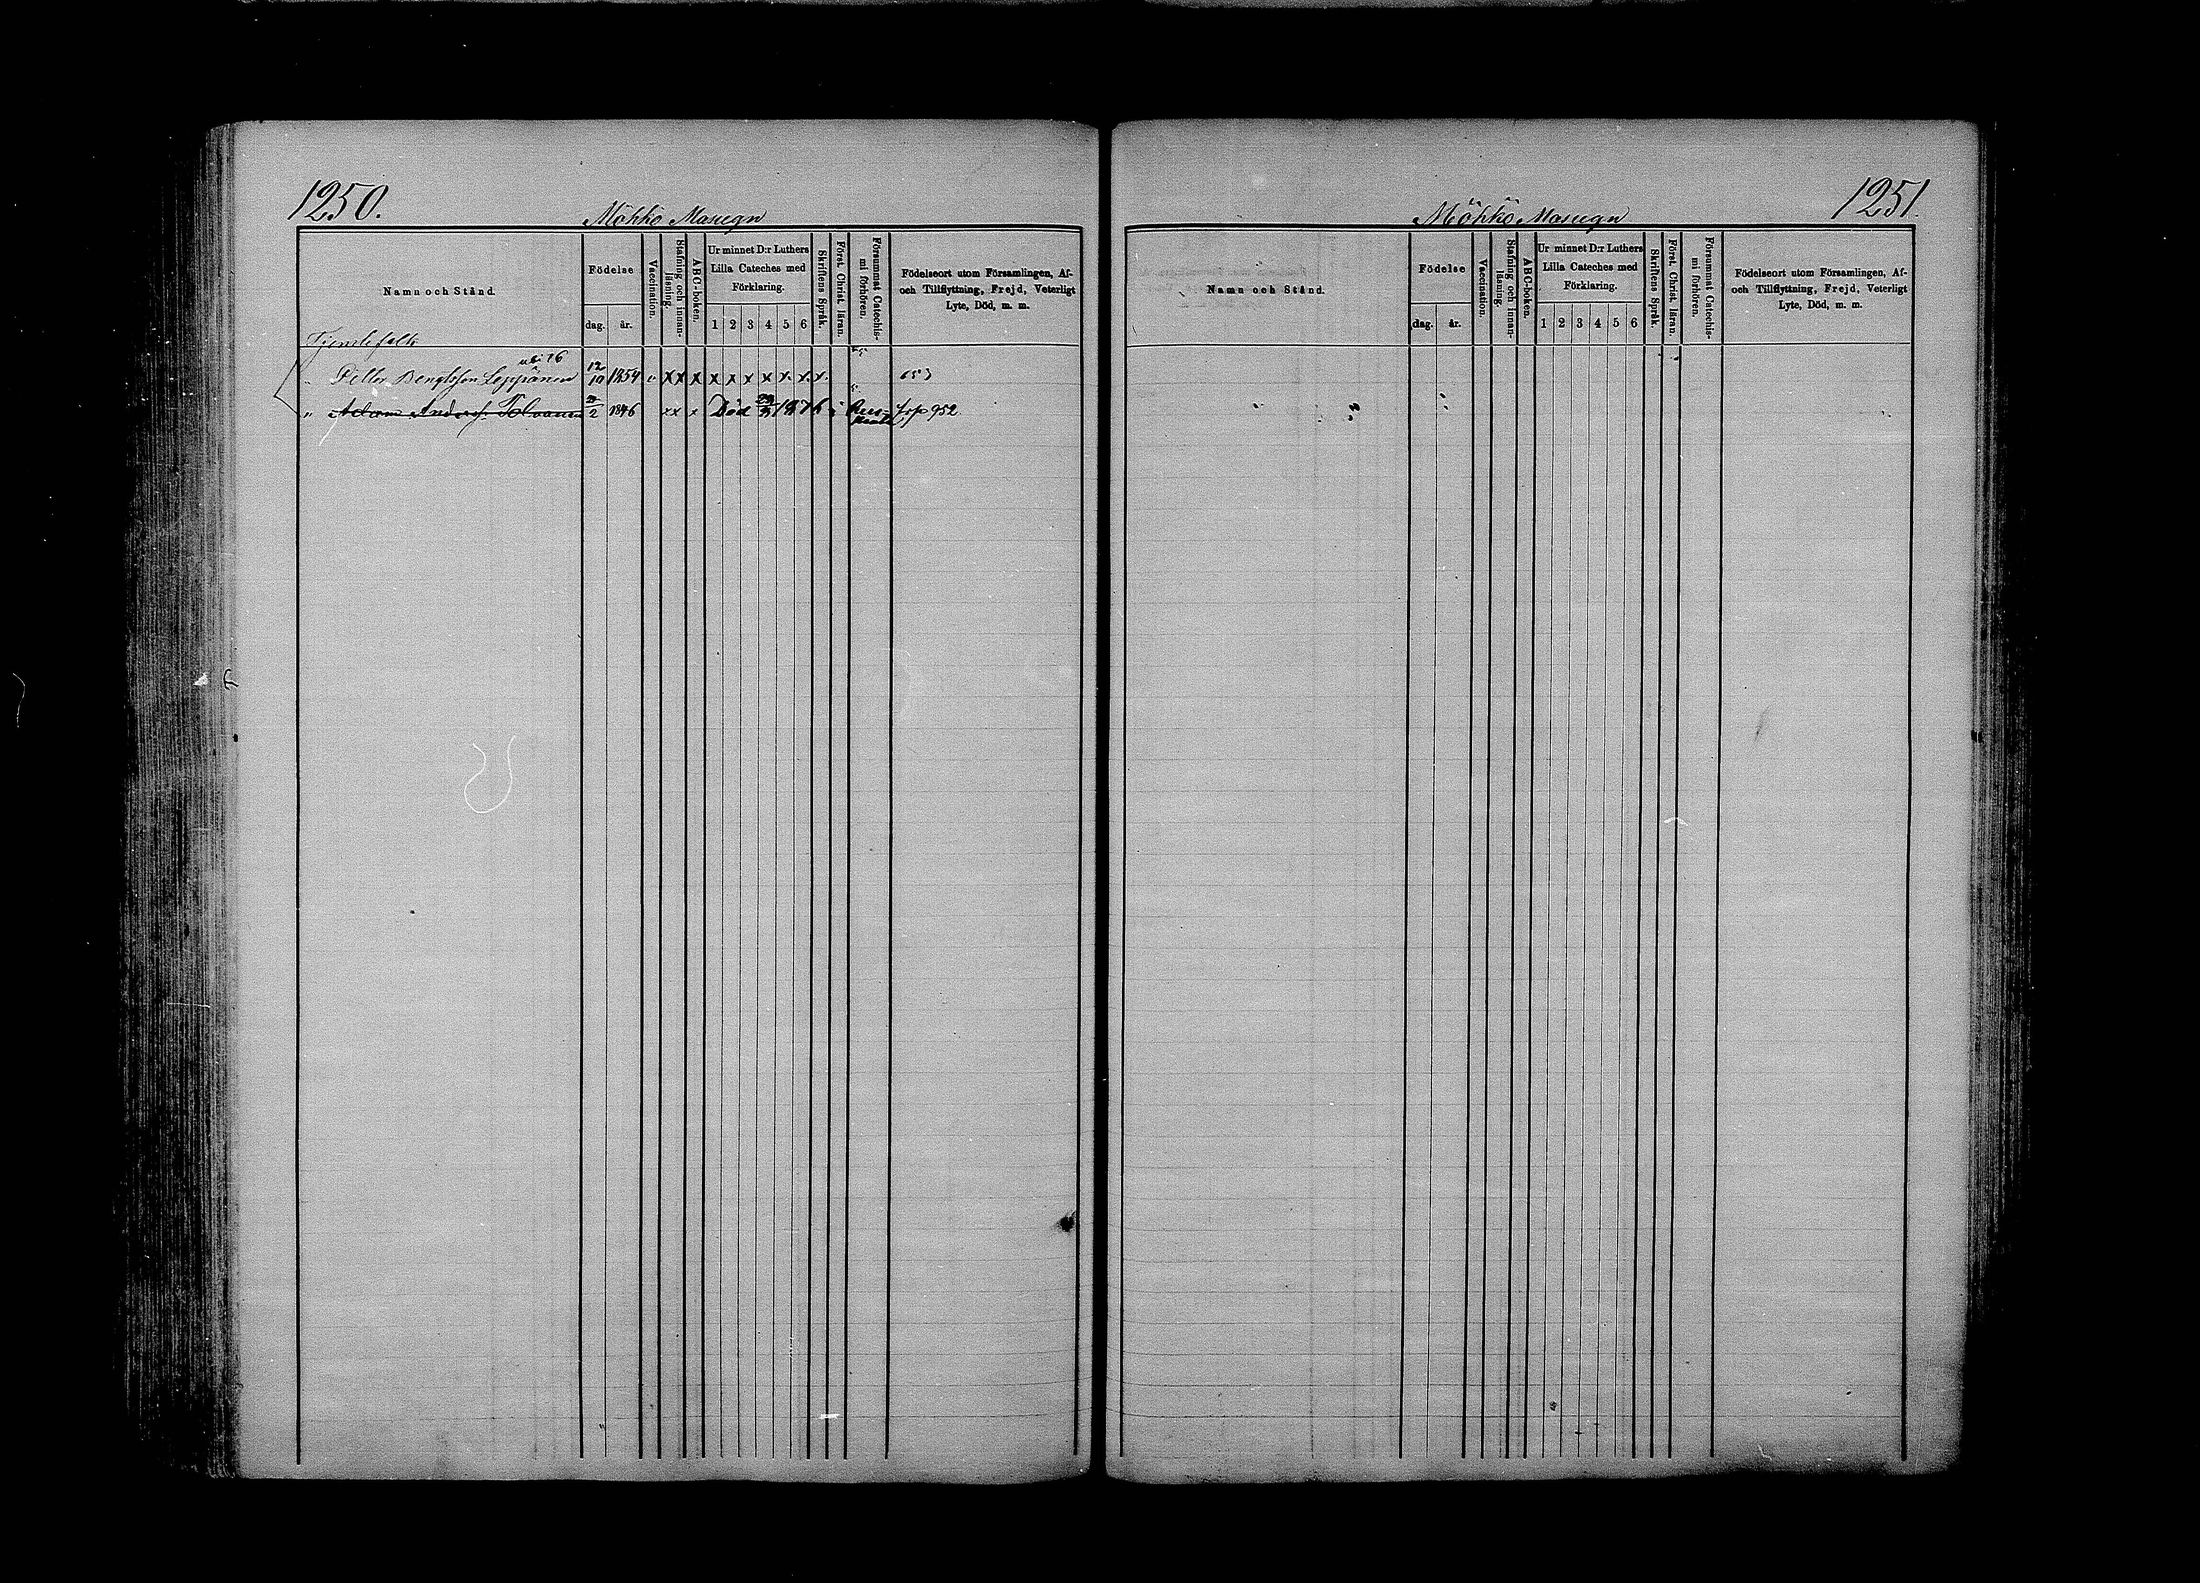 1250.
Möhkö Masugn
Namn och Stånd.
Födelse
dag. år.
Vaccination.
Stafning och innan-
läsning.
ABC-boken.
Ur minnet D:r Luthers
Lilla Cateches med
Förklaring.
1 2 3 4 5 6
Skriftens Språk.
Först. Christ. läran.
Försummat Catechis-
mi förhören.
Födelseort utom Församlingen, Af-
och Tillflyttning, Frejd, Veterligt
Lyte, Död, m. m.
Tjenstefolk
" Petter Bengtsson Leppänen 12/10 1854 v x x x x x x x x x x 653
" Adam Andersf. Tolvanen 2 1846 x x x Död 1876 Rus- fsp 952
1251.
Möhkö Masugn
Namn och Stånd.
Födelse
dag. år.
Vaccination.
Stafning och innan-
läsning.
ABC-boken.
Ur minnet D:r Luthers
Lilla Cateches med
Förklaring.
1 2 3 4 5 6
Skriftens Språk.
Först. Christ. läran.
Försummat Catechis-
mi förhören.
Födelseort utom Församlingen, Af-
och Tillflyttning, Frejd, Veterligt
Lyte, Död, m. m.